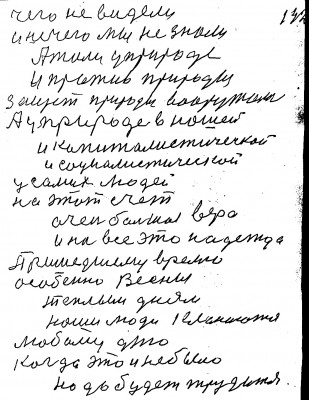 чего не видели 132
и ничего мы не знали
А тали у природе
и против природы
За щет природы вооружали
А у природе в нашей
и капиталистической
и социалистической
у самих людей
на этот счет
очен болшая вера
и на все это надежда
Пришедшему время
особенно Весны
теплым дням
наши люди кланются
любому дню
Когда это и не было
надо будет трудится.